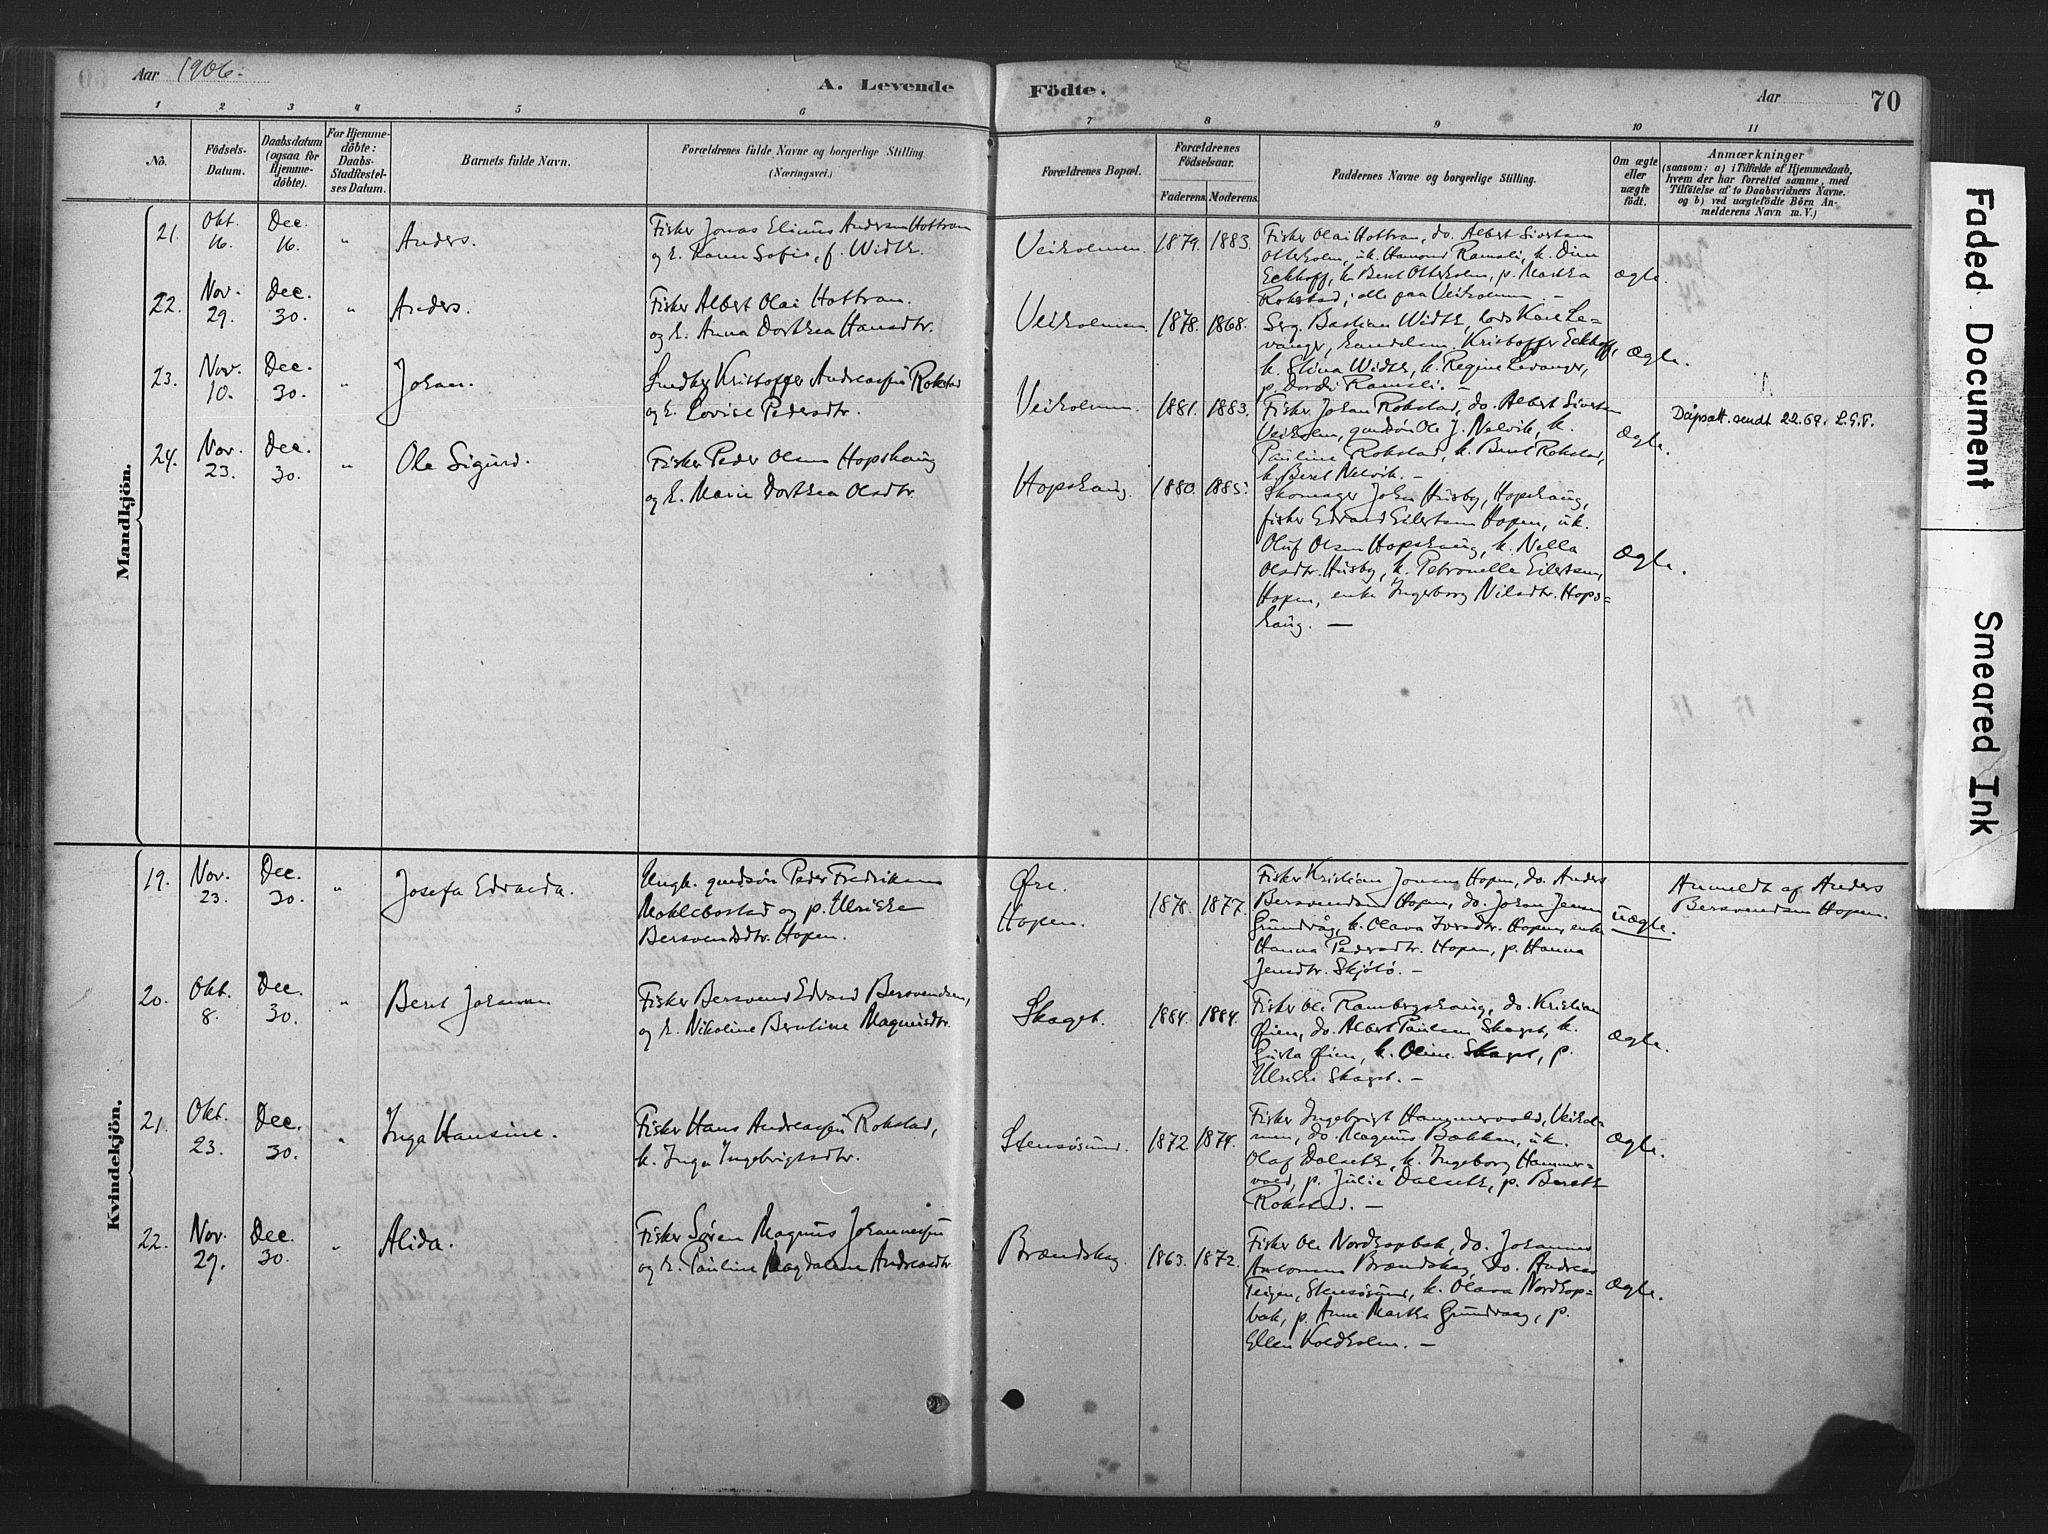 Aar 1906.
A. Levende
Födte.
Aar
70
1 2 3 4 5 6
7 8 9 10 11
No.
Födsels-Datum.
Daabsdatum (ogsaa for Hjemmedöbte).
For Hjemmedöbte: Daabs-Stadfæstelses Datum.
Barnets fulde Navn.
Forældrenes fulde Navne og borgerlige Stilling. (Næringsvei.)
Forældrenes Bopæl.
Forældrenes Födselsaar.
Faderens. Moderens.
Faddernes Navne og borgerlige Stilling.
Om ægte eller uægte födt.
Anmærkninger
(saasom: a) i Tilfælde af Hjemmedaab, hvem der har forrettet samme, med Tilföielse af to Daabsvidners Navne. og b) ved uægtefödte Börn Anmelderens Navn m. V.)
Mandkjön.
21. Okt. 16. Dec. 16. " Anders.
Fisker Jonas Elinus Andersen Hottran
og h. Karen Sofie, f. Width.
Veiholmen. 1879. 1883.
Fisker Olai Hottran, do. Albert Sivertsen
Otterholm, uk. Hamond Ramsli, k. Dina
Eckhoff, k. Berit Otterholm, p. Martha
Rokstad, alle paa Veiholmen. —
Ægte.
22. Nov. 29. Dec. 30. " Anders.
Fisker Albert Olai Hottran
og h. Anna Dorthea Hansdtr.
Veiholmen. 1878. 1868.
Serg. Bastian Width, lods Kare Le-
vanger, handelsm. Kristoffer Eckhoff,
k. Elina Width, k. Regine Levanger,
p. Dordi Ramsli. —
Ægte.
23. Nov. 10. Dec. 30. " Johan.
Smed Kristoffer Andreassen Rokstad
og h. Lovise Pedersdtr.
Veiholmen. 1881. 1883.
Fisker Johan Rokstad, do. Albert Sivertsen
Veiholm, gmdsøn Ole J. Nelvik, k.
Pauline Rokstad, k. Berit Rokstad,
k. Berit Nelvik. —
Ægte.
Dåpsatt. sendt 22.69. L.G.F.
24. Nov. 23. Dec. 30. " Ole Sigurd.
Fisker Peder Olsen Hopshaug
og h. Marie Dorthea Olsdtr.
Hopshaug. 1880. 1885.
Skomager Johan Husby, Hopshaug,
fisker Edvard Eilertsen Hopen, uk.
Oluf Olsen Hopshaug, k. Nella
Olsdtr. Husby, k. Petronelle Eilertsen,
Hopen, enke Ingeborg Nilsdtr. Hops-
haug. —
Ægte.
Kvindekjön.
19. Nov. 23. Dec. 30. " Josefa Edvarda.
Ungk. gmdsøn Peder Fredriksen
Moklebostad og p. Ulrikke
Bersvendsdtr. Hopen.
Øre.
Hopen.
1878. 1877.
Fisker Kristian Jonsen Hopen, do. Anders
Bersvendsen Hopen, do. Johan Jensen
Grundvåg, k. Olava Ivarsdtr. Hopen, enke
Hanna Pedersdtr. Hopen, p. Hanna
Jensdtr. Skjølø. —
Uægte.
Anmeldt af Anders
Bersvendsen Hopen.
20. Okt. 8. Dec. 30. " Berit Johanna
Fisker Bersvend Edvard Bersvendsen,
og h. Nikoline Berntine Magnusdtr.
Skaget. 1884. 1884.
Fisker Ole Rambergshaug, do. Kristian
Øien, do. Albert Paulsen Skaget, k.
Gusta Øien, k. Oline Skaget, p.
Ulrikke Skaget. —
Ægte.
21. Okt. 23. Dec. 30. " Inga Hansine.
Fisker Hans Andreassen Rokstad,
k. Inga Ingebrigtsdtr.
Stensøsund. 1872. 1874.
Fisker Ingebrigt Hammervold, Veihol-
men, do. Magnus Bakken, uk.
Olaf Dalseth, k. Ingeborg Hammer-
vold, p. Julie Dalseth, p. Bereth
Rokstad. —
Ægte.
22. Nov. 29. Dec. 30. " Alida.
Fisker Søren Magnus Johannessen
og h. Pauline Magdalena Andreasdtr.
Brændskag. 1863. 1872.
Fisker Ole Nordhopbak, do. Johannes
Antonsen Brændskag, do. Andreas
Teigen, Stensøsund, k. Olava Nordhop-
bak, p. Anne Martha Grundvaag, p.
Ellen Koldholm. —
Ægte.
Faded Document
Smeared Ink